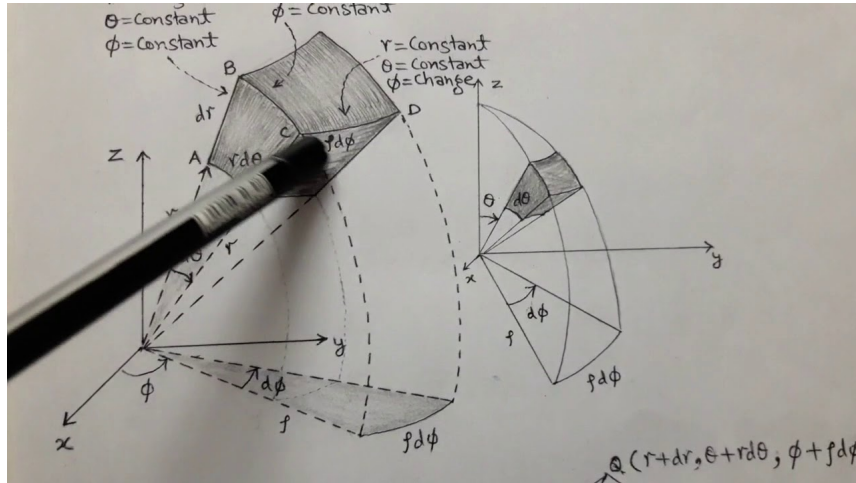 θ=Constant
ϕ=Constant
ϕ=Constant
r=Constant
θ=Constant
ϕ=Change
B
dr
C
D
A
rdθ
ρdϕ
Z
r
y
x
ϕ
dϕ
ρ
ρdϕ
z
θ
dθ
x
y
dϕ
ρ
ρdϕ
Q(r+dr, θ+rdθ, ϕ+ρdϕ